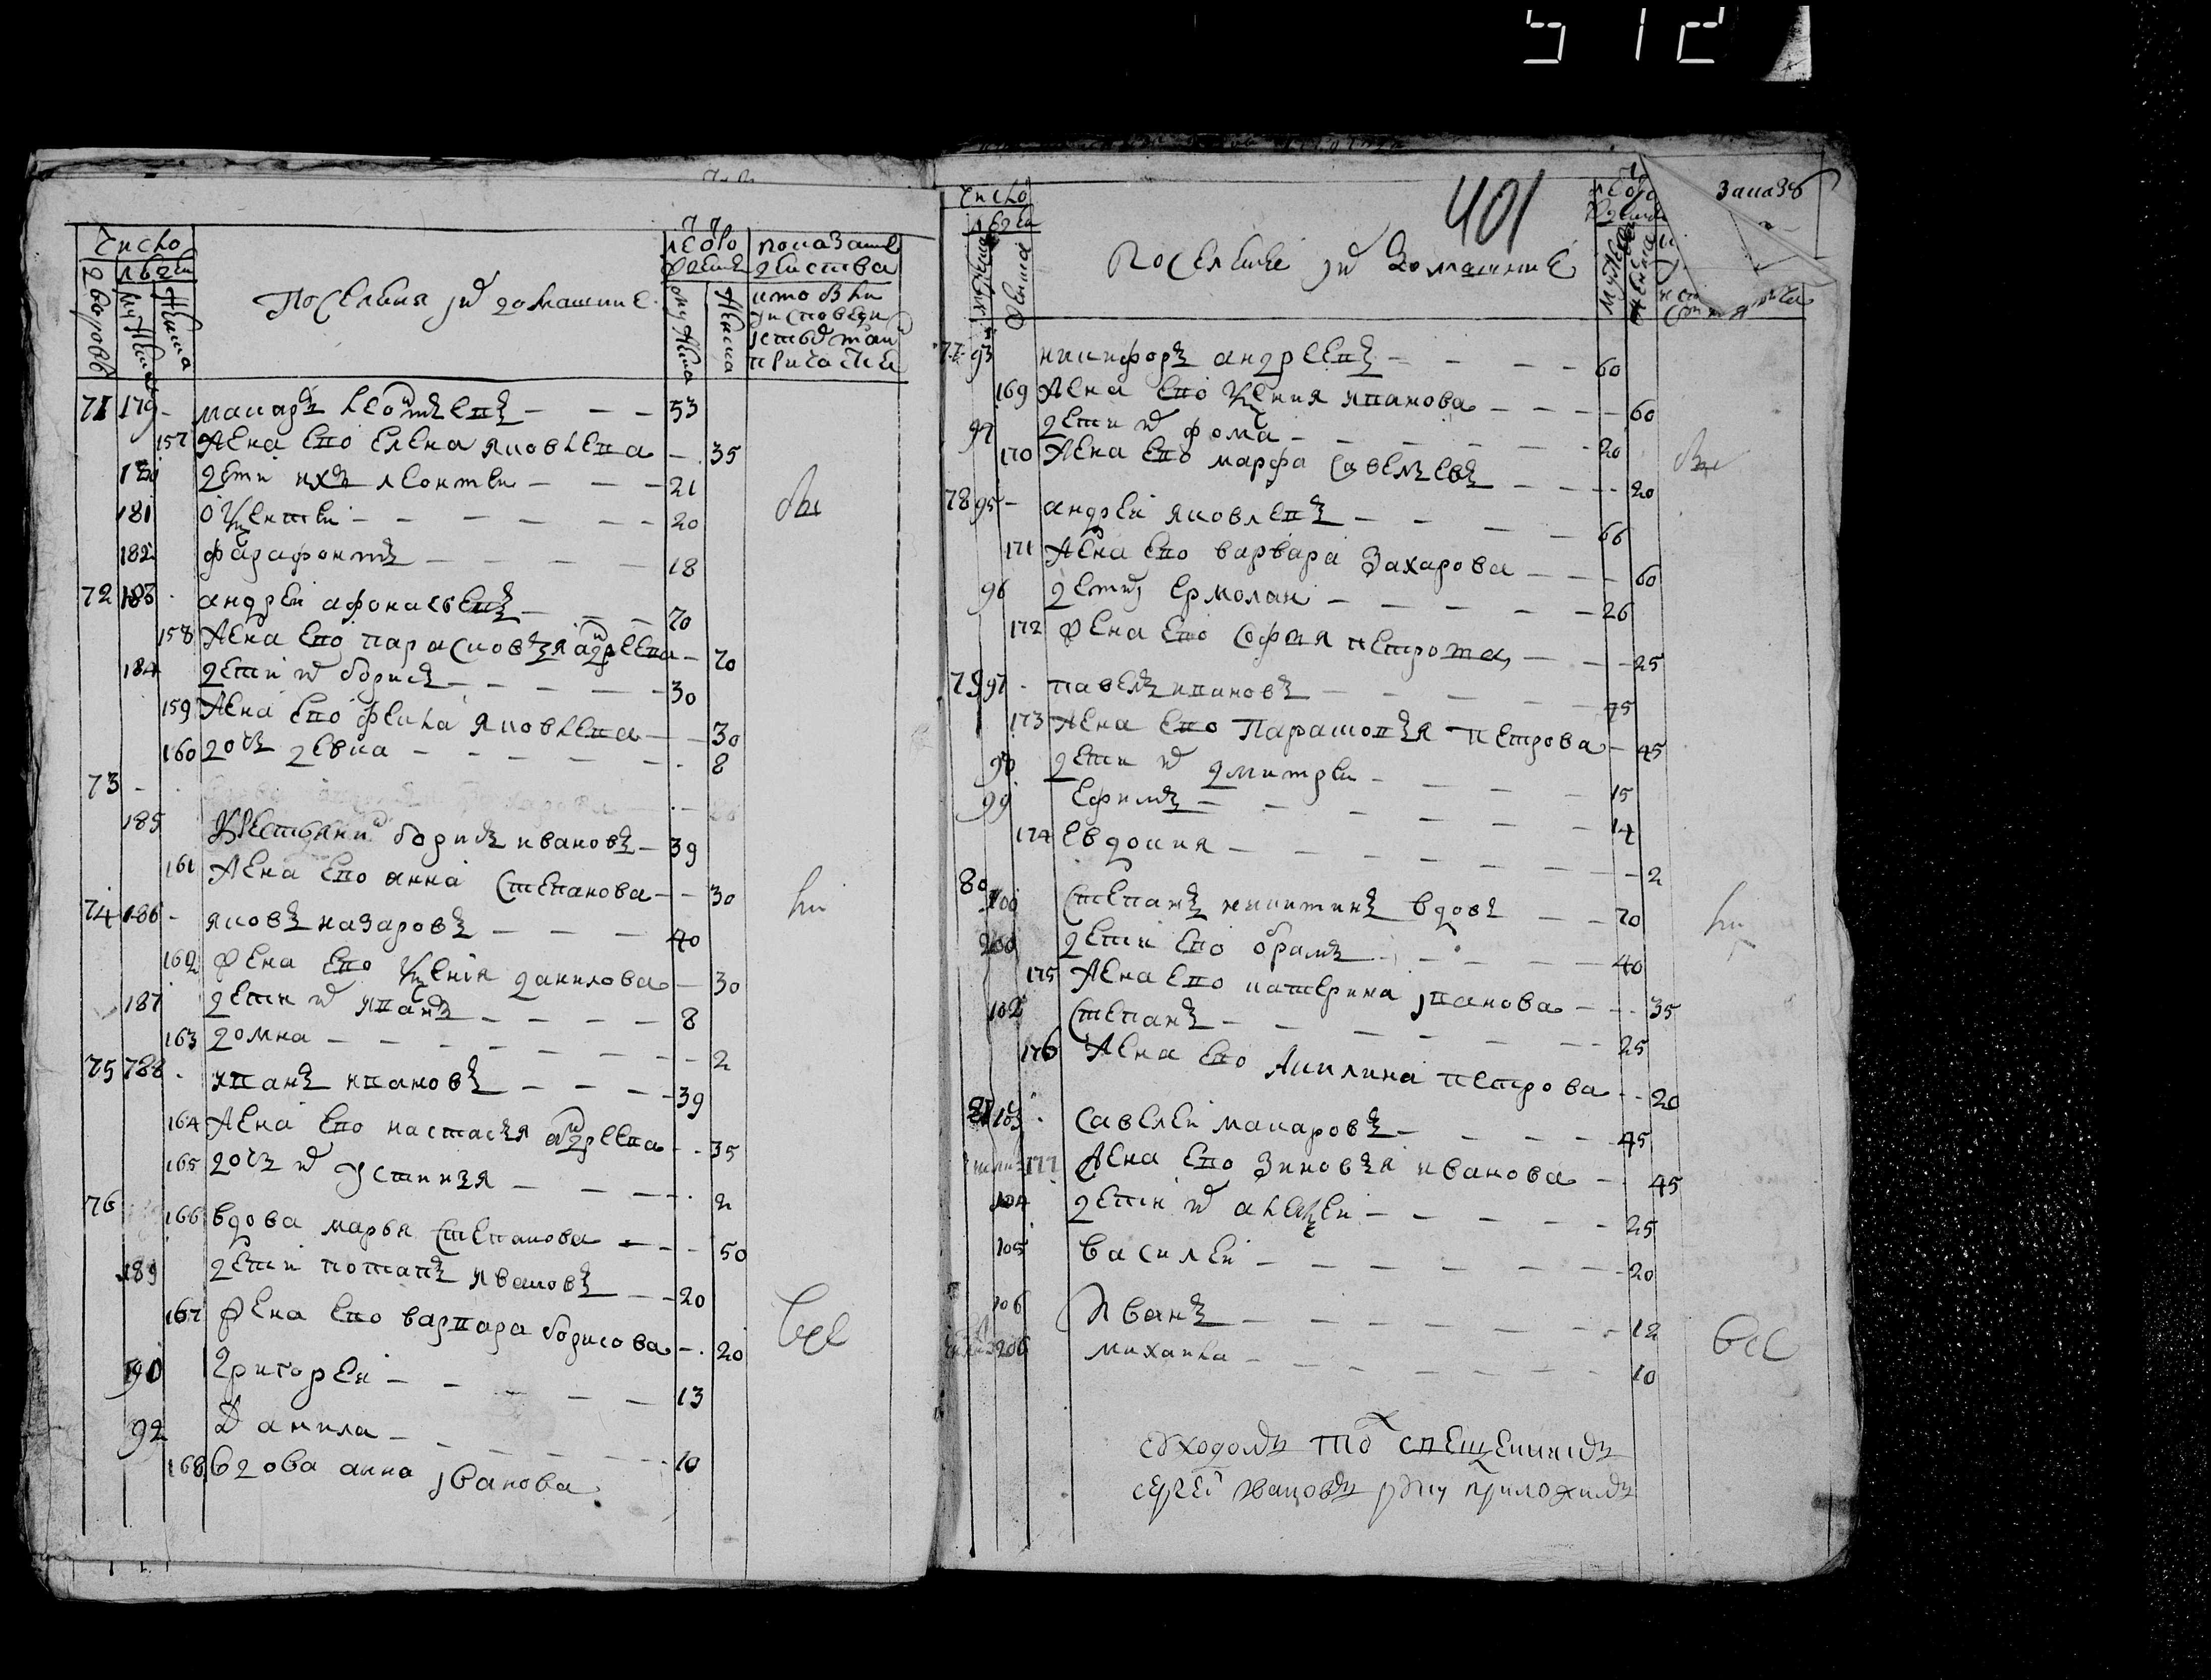 512
Число
людеи
дворовъ
мужеска
женска
Поселяня и их домашние
лето
рождениѧ
мужеска
женска
показание
деиства
кто был
у исповеди
и святых таин
причастия
71 179 макаръ леонтьевъ 53
157 жена ево елена яковлева 35
180 дети ихъ леонтеи 21
181 ѯенѳеи 20
182 фарафонтъ 18
были
72 183 андреи афонасьевъ 70
158 жена ево парасковья андреева 70
184 дети их борисъ 30
159 жена ево фекла яковлева 30
160 дочь девка 8
73
185 крестьянин борисъ ивановъ 39
161 жена ево анна степанова 30
74 186 яковъ назаровъ 40
162 жена ево ѯения данилова 30
187 дети их иванъ 8
163 домна 2
75 188 иванъ ивановъ 39
164 жена ево настасья андреева 35
165 дочь их устинья 2
76 166 вдова марья степанова 50
189 дети потапъ ивановъ 20
167 жена ево варвара борисова 20
90 григореи 13
92 данила 10
168 вдова анна иванова
ли
все
Число
401
Поселяне и их домашние
мужеска
женска
77 93 никифоръ андреевъ 60
169 жена ево ѯения иванова 60
94 дети их фома 20
170 жена ево марфа савельевъ 20
78 95 андреи яковлевъ 66
171 жена ево варвара захарова 60
96 дети ермолаи 26
172 жена ево софия петрова 25
79 97 павелъ ивановъ 75
173 жена ево парасковья петрова 45
98 дети их дмитреи 15
99 ефимъ 14
174 евдокия 2
80 100 степанъ никитинъ вдовъ 70
дети ево абрамъ 40
175 жена ево катерина иванова 35
102 степанъ 25
176 жена ево акилина петрова 20
81 103 савелеи макаровъ 45
177 жена ево зиновья иванова 45
104 дети их алеѯеи 25
105 василеи 20
106 иванъ 12
206 михаила 10
были
ли
все
к сему исходомъ тоѯ священникъ
сергеи ивановъ руку приложилъ